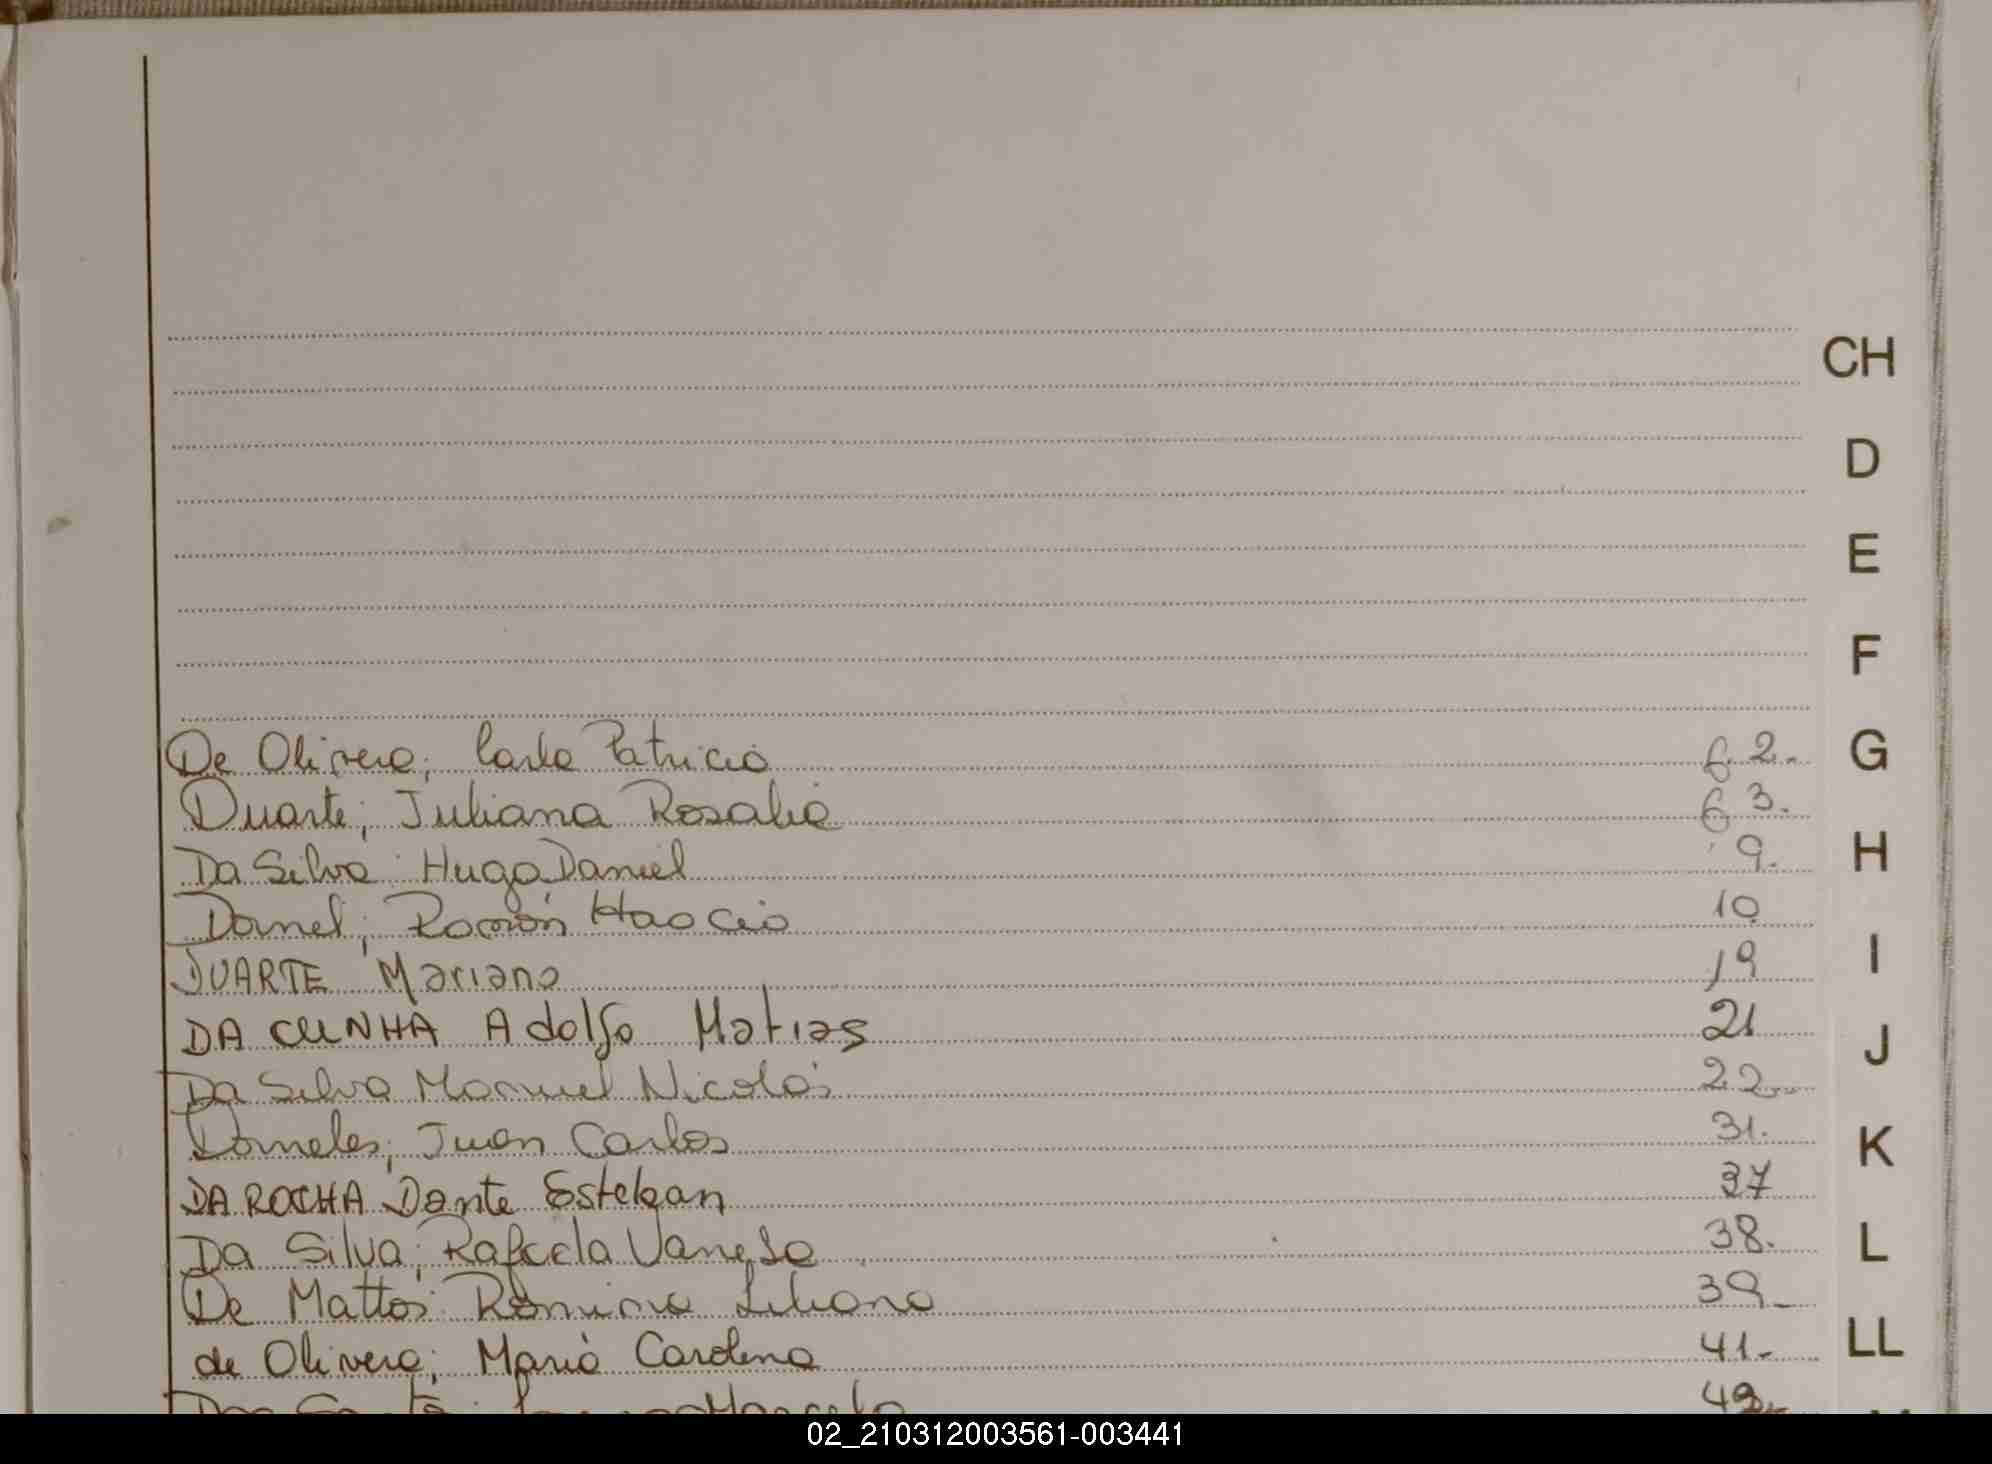 CH
D
E
F
De Olivera; Carla Patricia f. 2.- G
Duarte; Juliana Rosalia f 3.
Da Silva Hugo Daniel 9. H
Dornel; Ramón Horacio 10
DUARTE Mariano 19 I
DA CUNHA Adolfo Matias 21 J
Da Silva Manuel Nicolás 22.-
Dorneles; Juan Carlos 31. K
DA ROCHA Dante Esteban 37
Da Silva; Rafaela Vanesa 38. L
De Mattos Romina Liliana 39.-
de Olivera; María Carolina 41.- LL
02_210312003561-003441